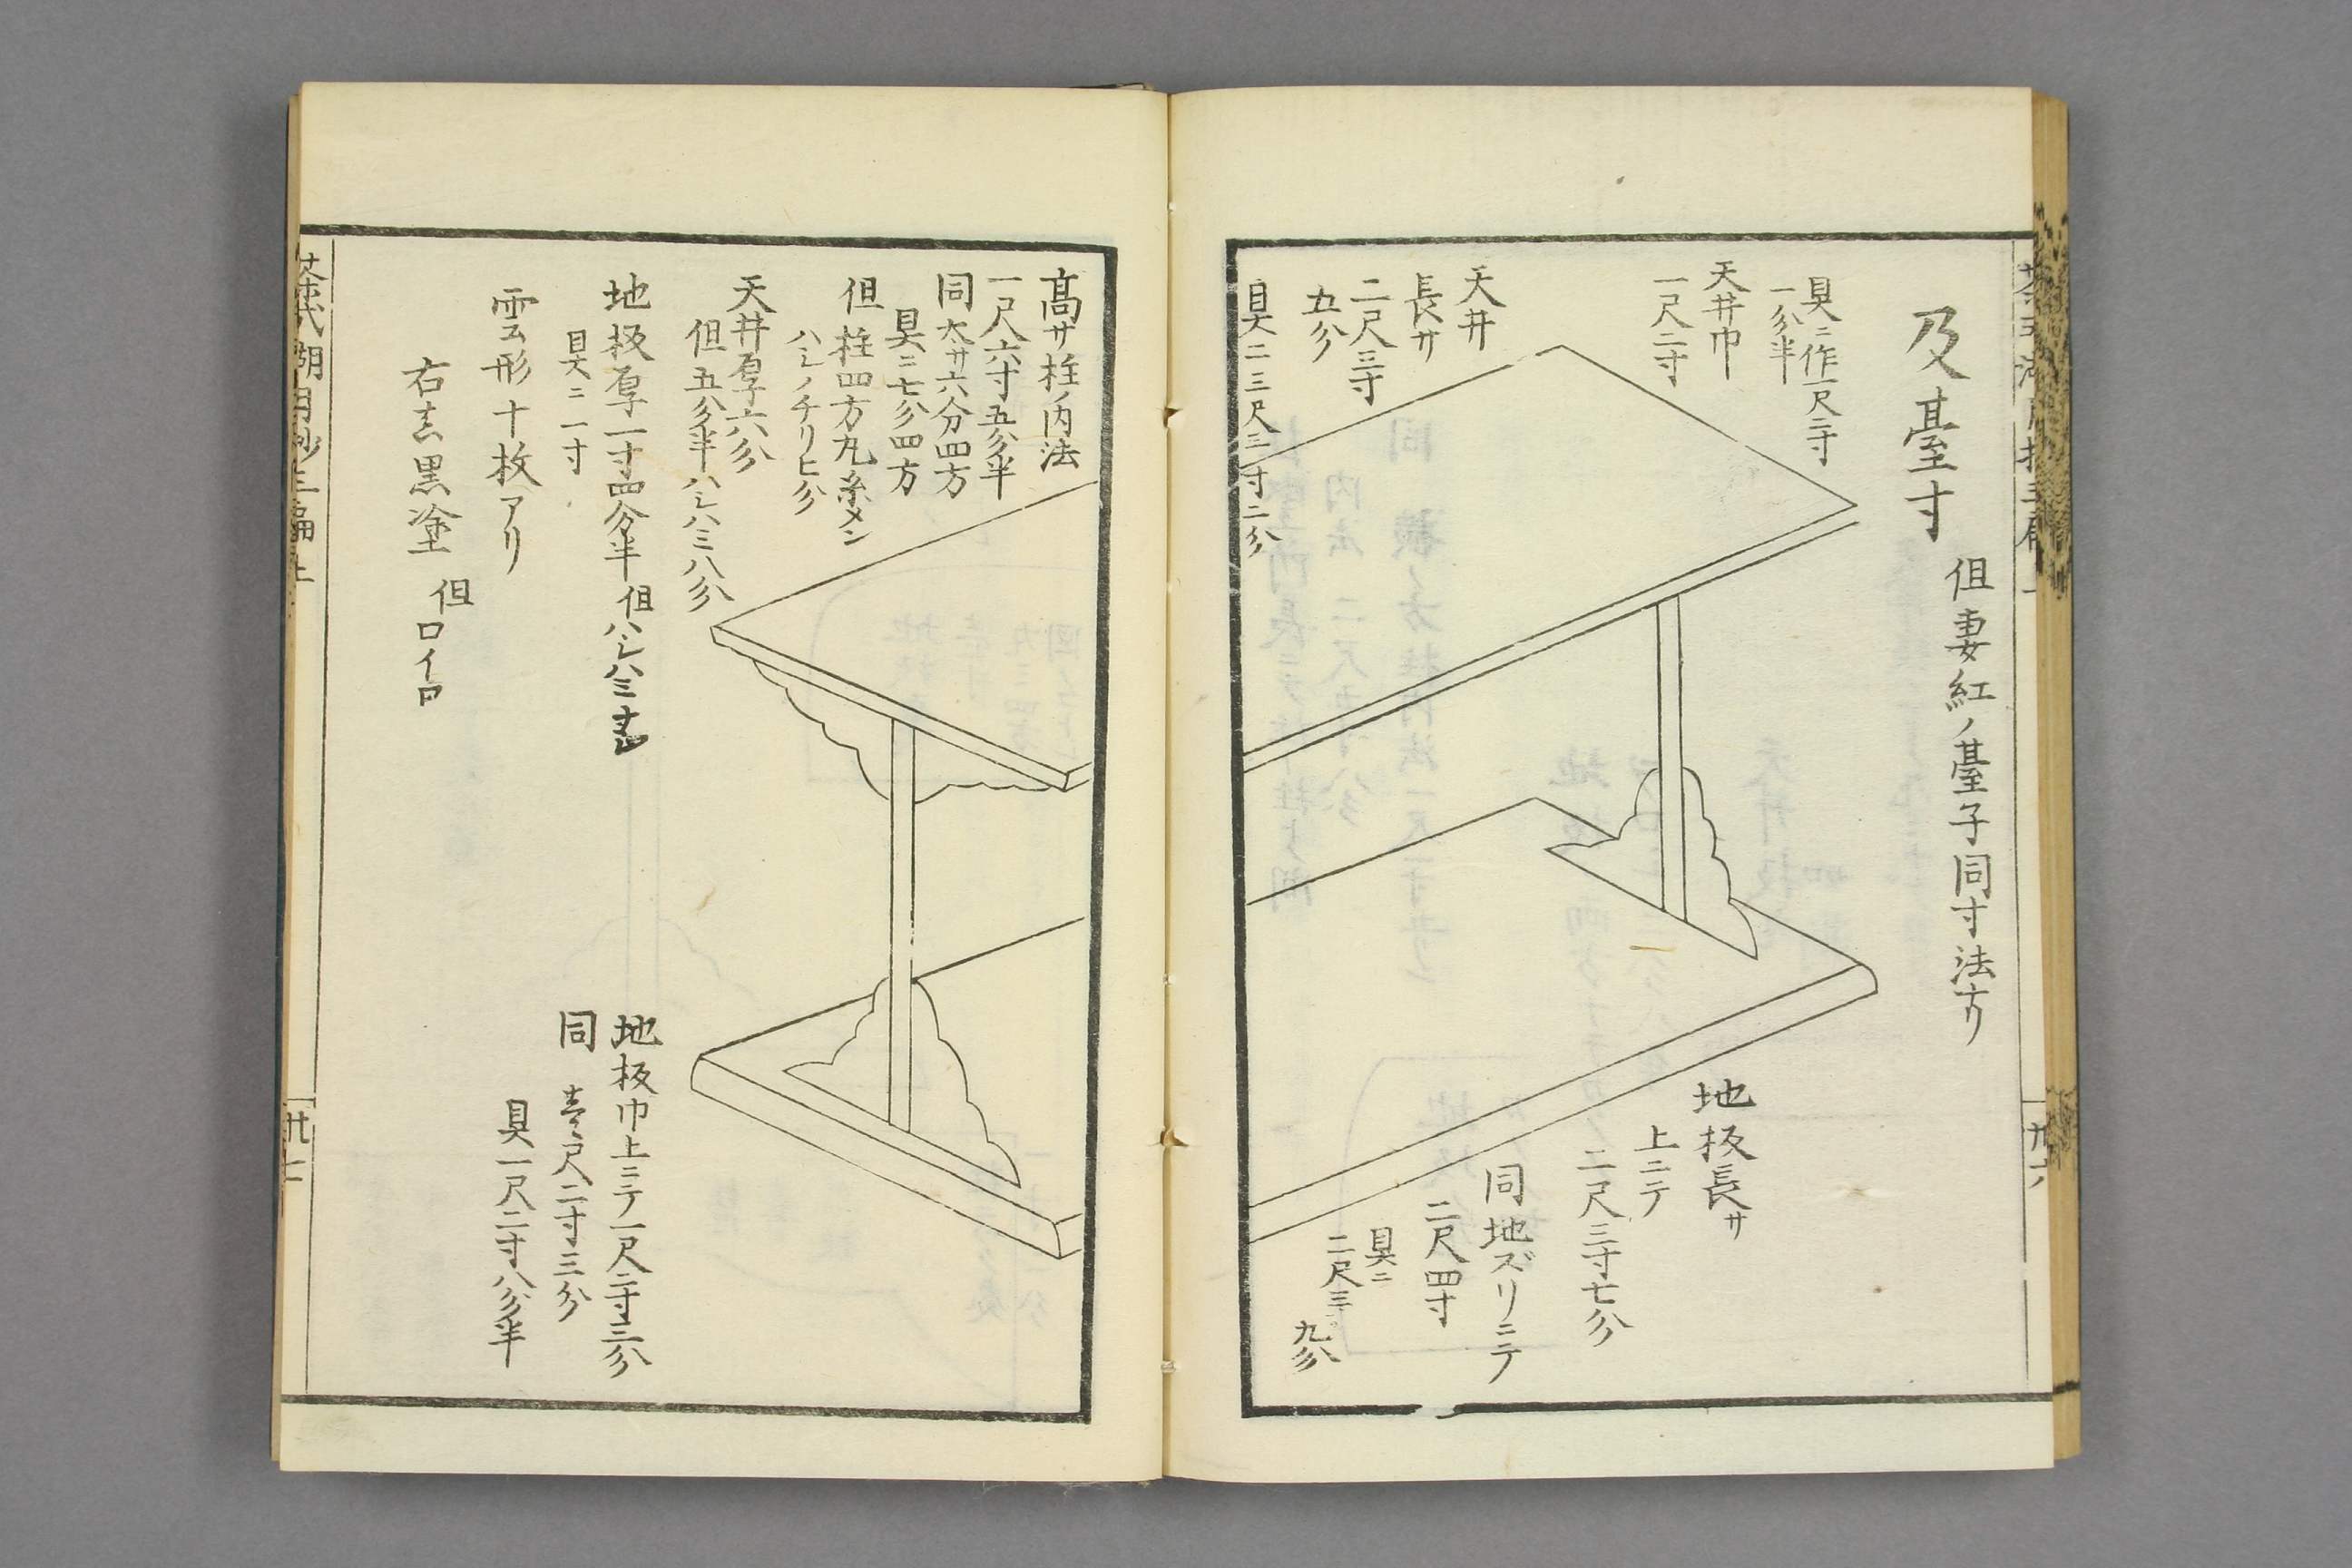 及臺寸
但妻紅ノ臺子同寸法ナリ
具ニ作一尺二寸
一分半
天井巾
一尺二寸
天井
長サ
二尺三寸
五分
具ニ二尺三寸二分
地板長サ
上ニテ
二尺三寸七分
同地ズリニテ
二尺四寸
具ニ
二尺三寸
九分
高サ柱ノ内法
一尺六寸五分半
同太サ六分四方
具ニ七分四方
但柱四方九糸メン
ハシノチリヒ分
天井厚六分
但五分半ハシハ三八分
地板厚一寸四分半
但ハシハ三寸
具ニ一寸
雲形十枚アリ
右志黒塗
但ロイロ
地板巾上ニテ一尺二寸三分
同
壹尺二寸三分
具一尺二寸八分半
茶式湖月抄三編上
廿七